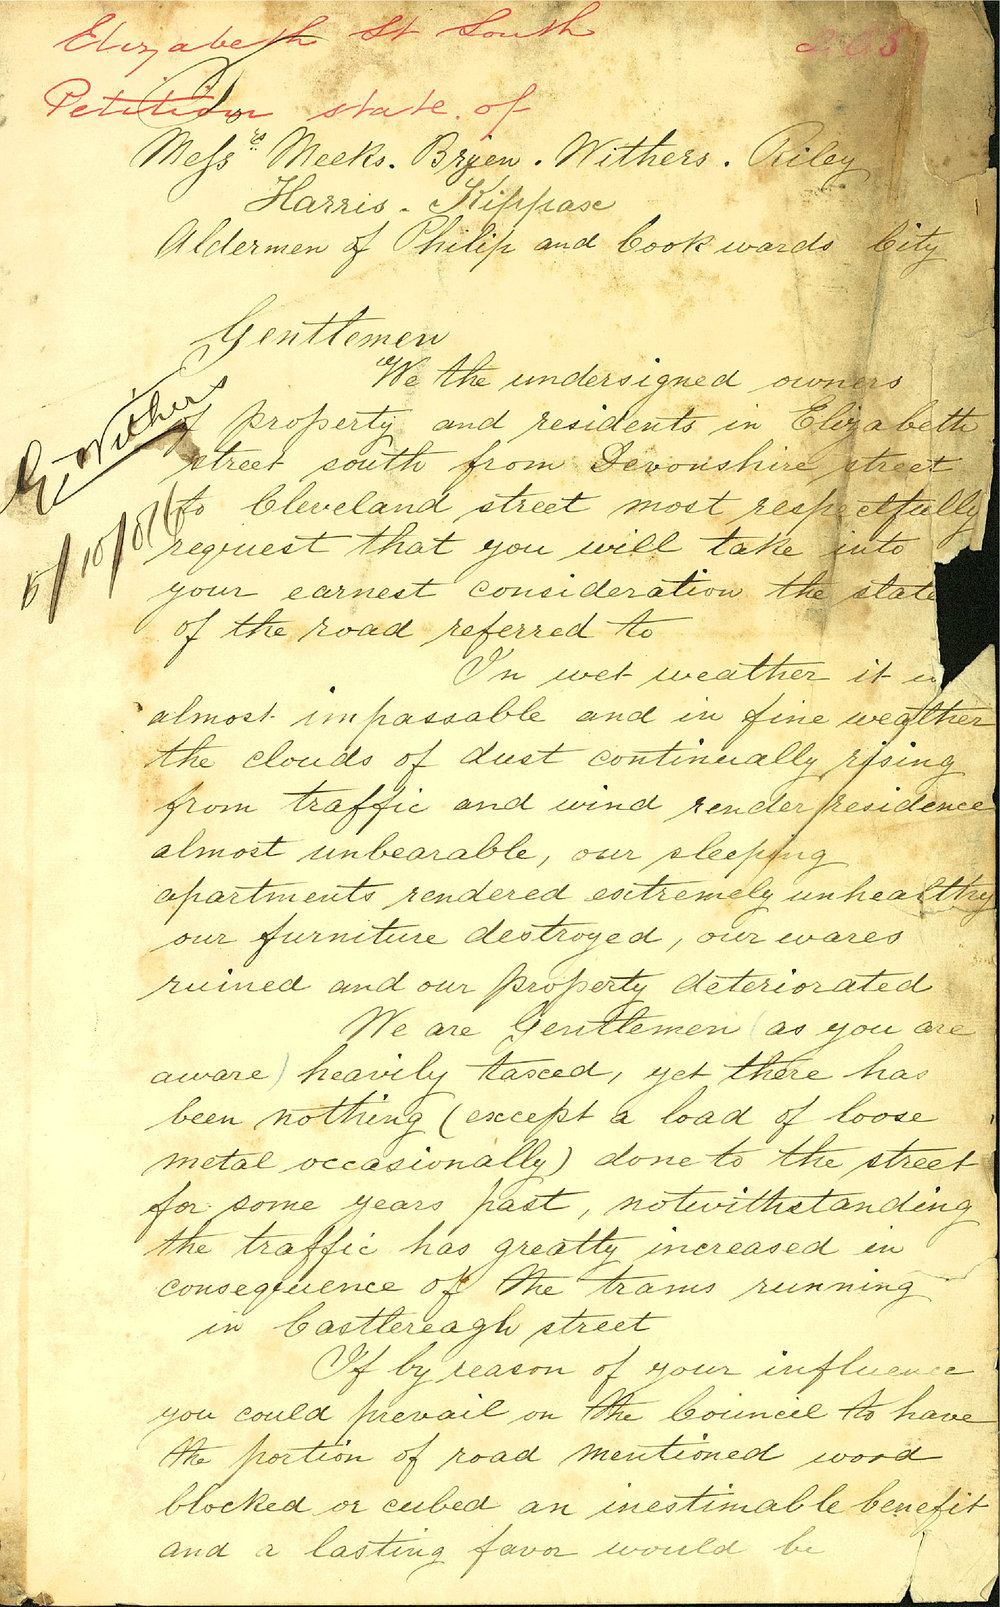 Elizabeth St South
Petition state of
Messrs Meeks. Bryen. Withers. Riley
Harris. Kippax
Aldermen of Philip and Cook wards City
Gentlemen
We the undersigned owners
of property and residents in Elizabeth
street south from Devonshire street
to Cleveland street most respectfully
request that you will take into
your earnest consideration the state
of the road referred to
In wet weather it
almost impassable and in fine weather
the clouds of dust continually rising
from traffic and wind render residence
almost unbearable, our sleeping
apartments rendered extremely unhealthy
our furniture destroyed, our wares
ruined and our property deteriorated
We are Gentlemen (as you are
aware) heavily taxed, yet there has
been nothing (except a load of loose
metal occasionally) done to the street
for some years past, notwithstanding
the traffic has greatly increased in
consequence of the trams running
in Castlereagh street
If by reason of your influence
you could prevail on the Council to have
the portion of road mentioned wood
blocked or cubed an inestimable benefit
and a lasting favor would be
G. Withers